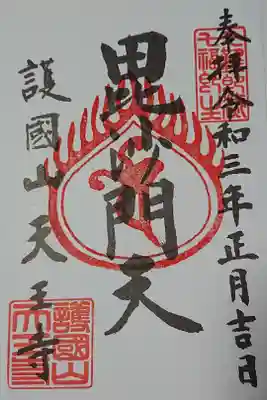 奉拝令和三年正月吉日
毘沙門天
護國山天王寺
護國山
天王寺